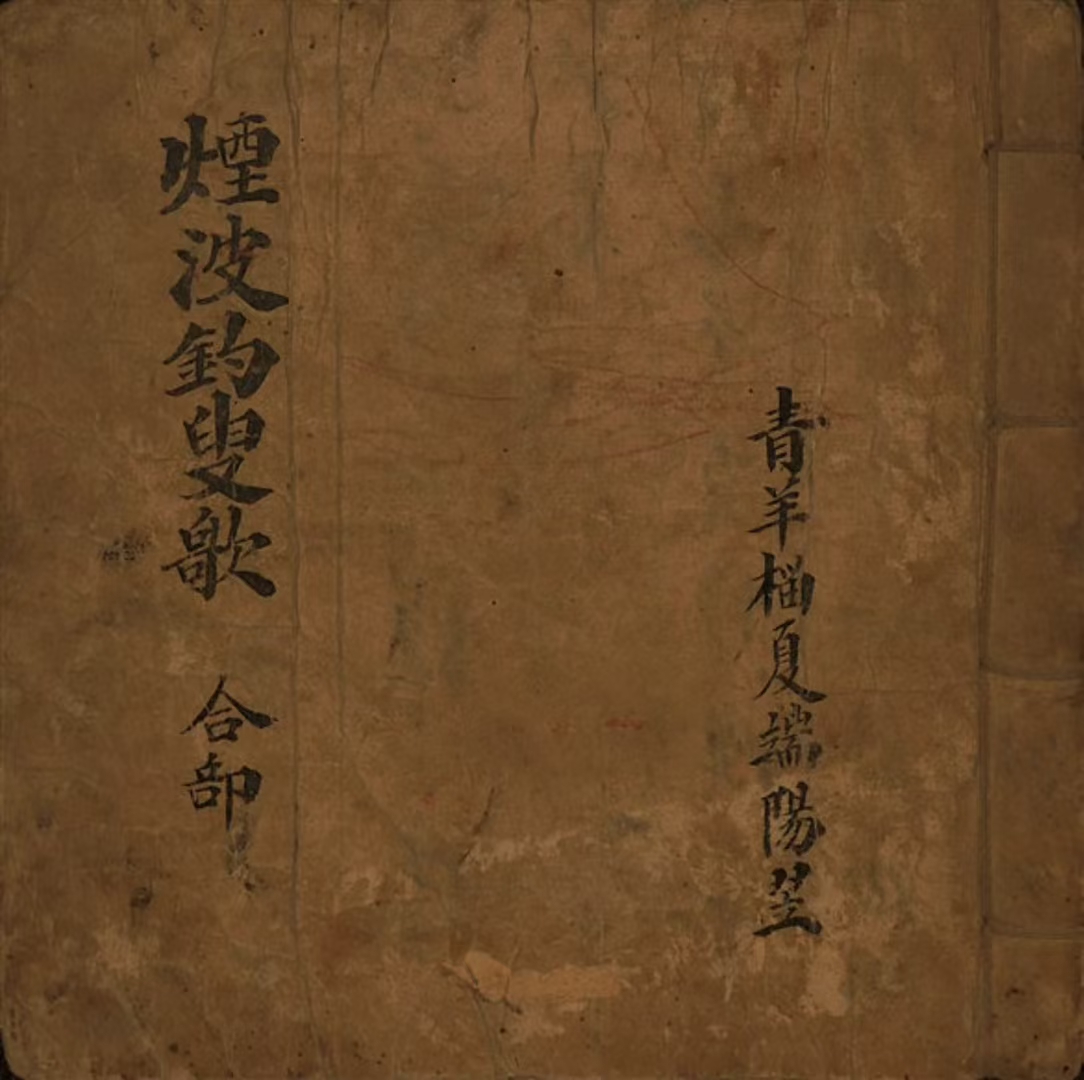 青羊榴夏端陽
煙波釣叟歌 合部